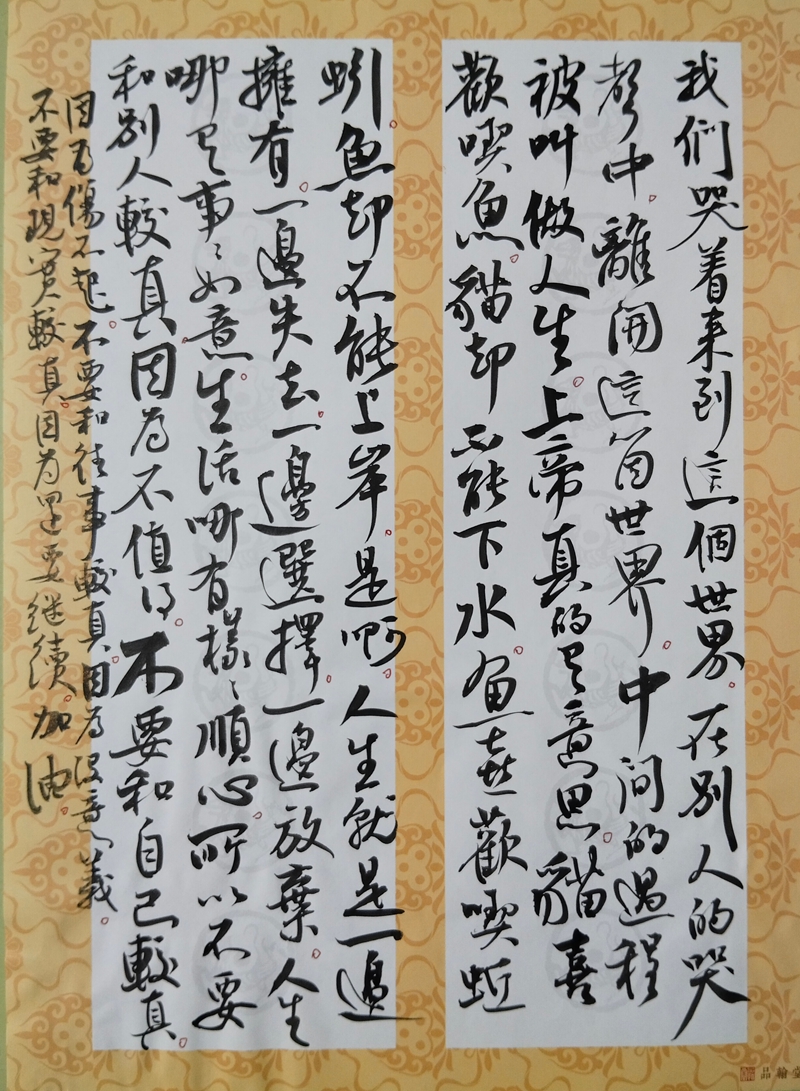 我們哭着来到這個世界。在别人的哭
聲中。離開這箇世界。中间的過程
被叫做人生。上帝真的是意思。貓喜
歡喫魚。貓却不能下水。魚喜歡喫蚯
蚓。魚却不能上岸。是啊。人生就是一邊
擁有。一邊失去。一邊選擇。一邊放棄。人生
哪是事々如意。生活哪有樣々順心。所以不要
和别人較真。因为不值得。不要和自己較真。
因为傷不起。不要和往事較真。因为没意義。
不要和現實較真。因为還要继續。加油。
品翰堂